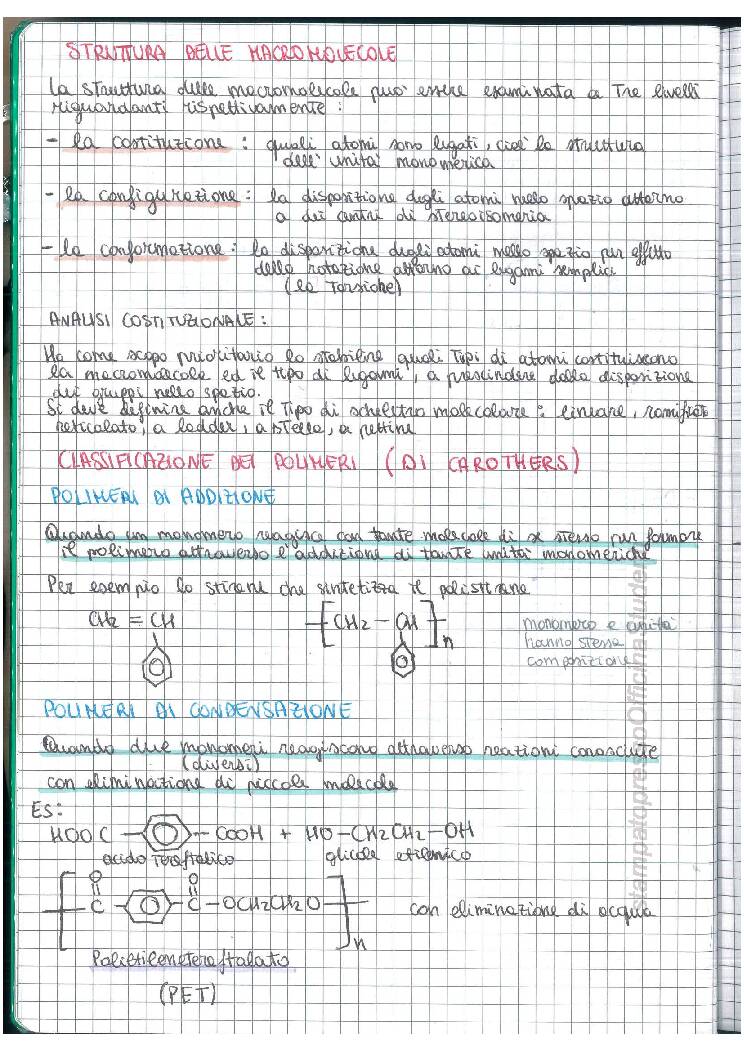 STRUTTURA DELLE MACROMOLECOLE
La struttura delle macromolecole può essere esaminata a Tre livelli
riguardanti rispettivamente :
- la costituzione : quali atomi sono legati, cioè la struttura
dell' unità monomerica
- la configurazione : la disposizione degli atomi nello spazio attorno
a dei centri di stereoisomeria
- la conformazione : la disposizione degli atomi nello spazio per effetto
della rotazione attorno ai legami semplici
(la Torsione)
ANALISI COSTITUZIONALE :
Ha come scopo prioritario lo stabilire quali Tipi di atomi costituiscono
la macromolecola ed il tipo di legami, a prescindere dalla disposizione
dei gruppi nello spazio.
Si deve definire anche il Tipo di scheletro molecolare : lineare, ramificato
reticolato, a ladder, a stella, a pettine
CLASSIFICAZIONE DEI POLIMERI (DI CAROTHERS)
POLIMERI DI ADDIZIONE
Quando un monomero reagisce con tante molecole di se stesso per formare
il polimero attraverso l'addizione di tante unità monomeriche
Per esempio lo stirene che sintetizza il polistirene
CH2 = CH
[CH2 - CH]n
monomero e unità
hanno stessa
composizione
POLIMERI DI CONDENSAZIONE
Quando due monomeri reagiscono attraverso reazioni conosciute
(diversi)
con eliminazione di piccole molecole
ES:
HOOC - - COOH + HO-CH2CH2-OH
acido Tereftalico glicole etilenico
O O
[C - - C - OCH2CH2O]n con eliminazione di acqua
Polietilentereftalato
(PET)
stampatopressoOfficinaStudenti